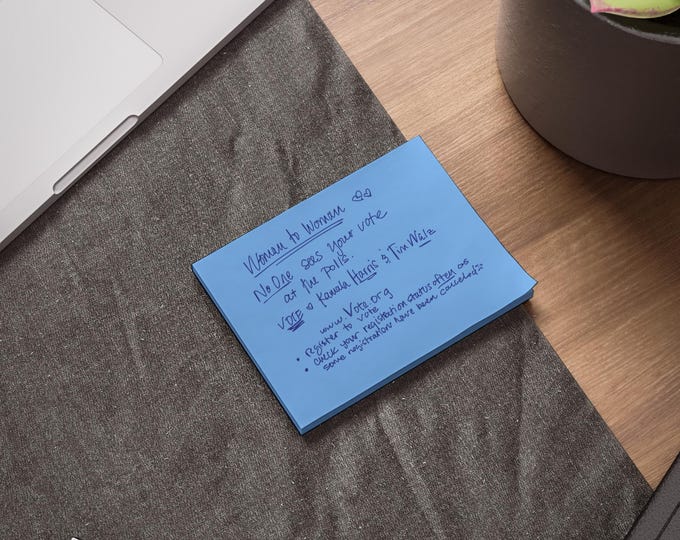 Woman to Woman ♡♡
No One sees your vote
at the polls.
VOTE ♡ Kamala Harris & Tim Walz
www.Vote.org
• Register to vote
• Check your registration status often as
some registrations have been canceled!